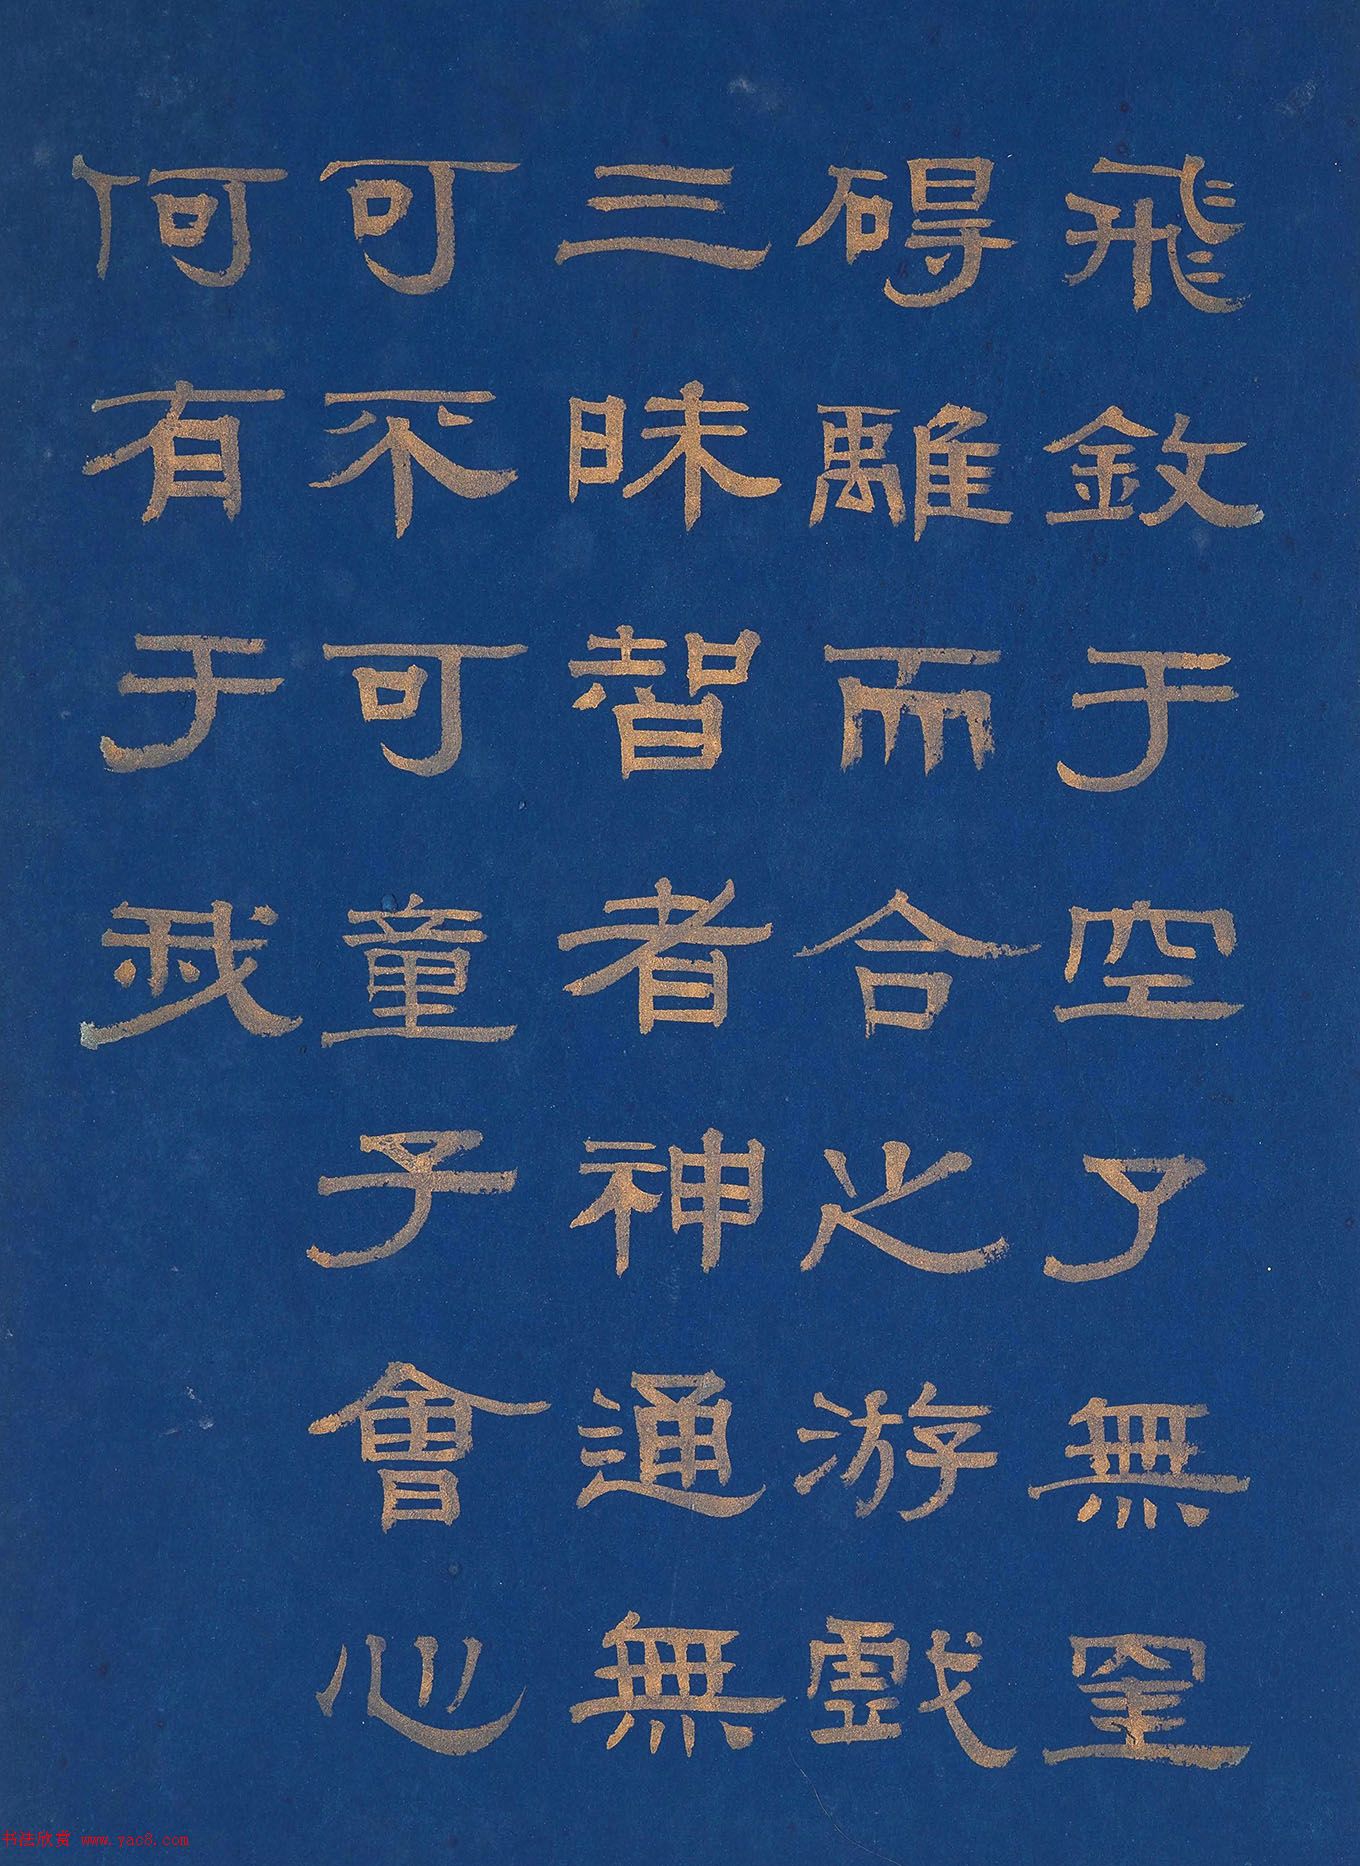 飛鈙于空了無罣
碍離而合之游戲
三昧智者神通無
可不可童子會心
何有于我
书法欣赏 www.yac8.com